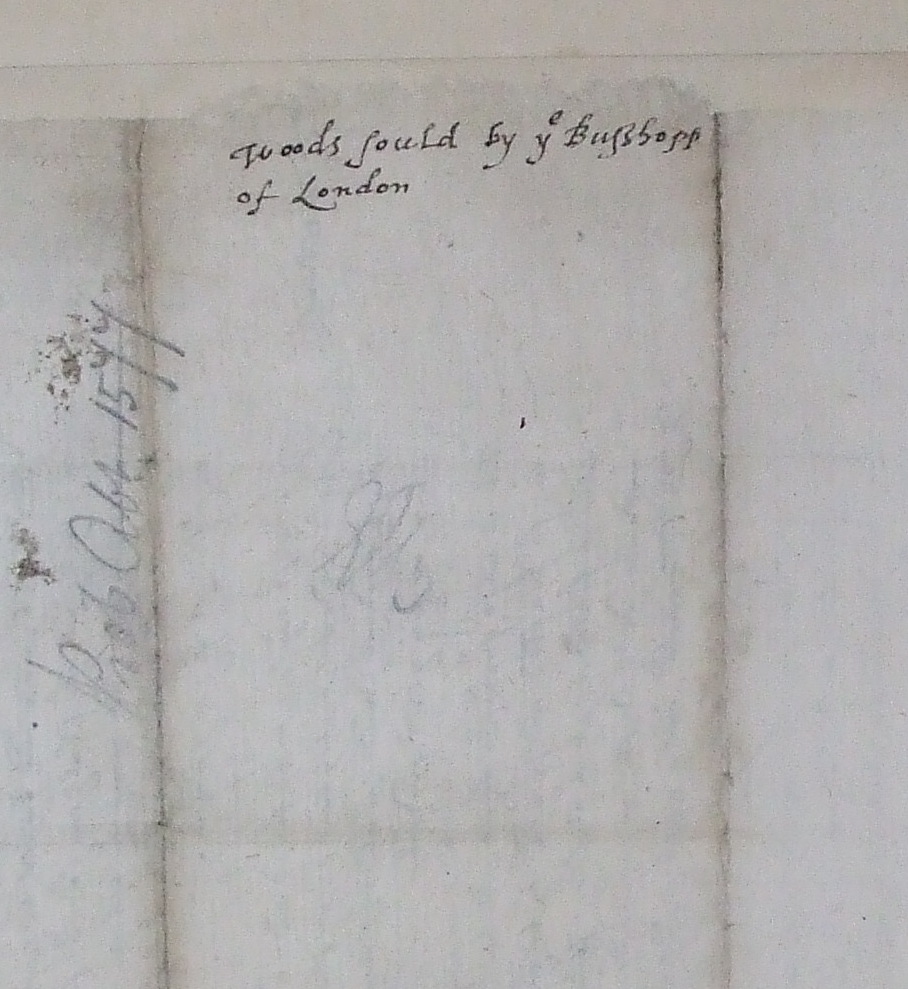 Woods sould by yᵉ Busshopp
of London
Prob Abt 1577